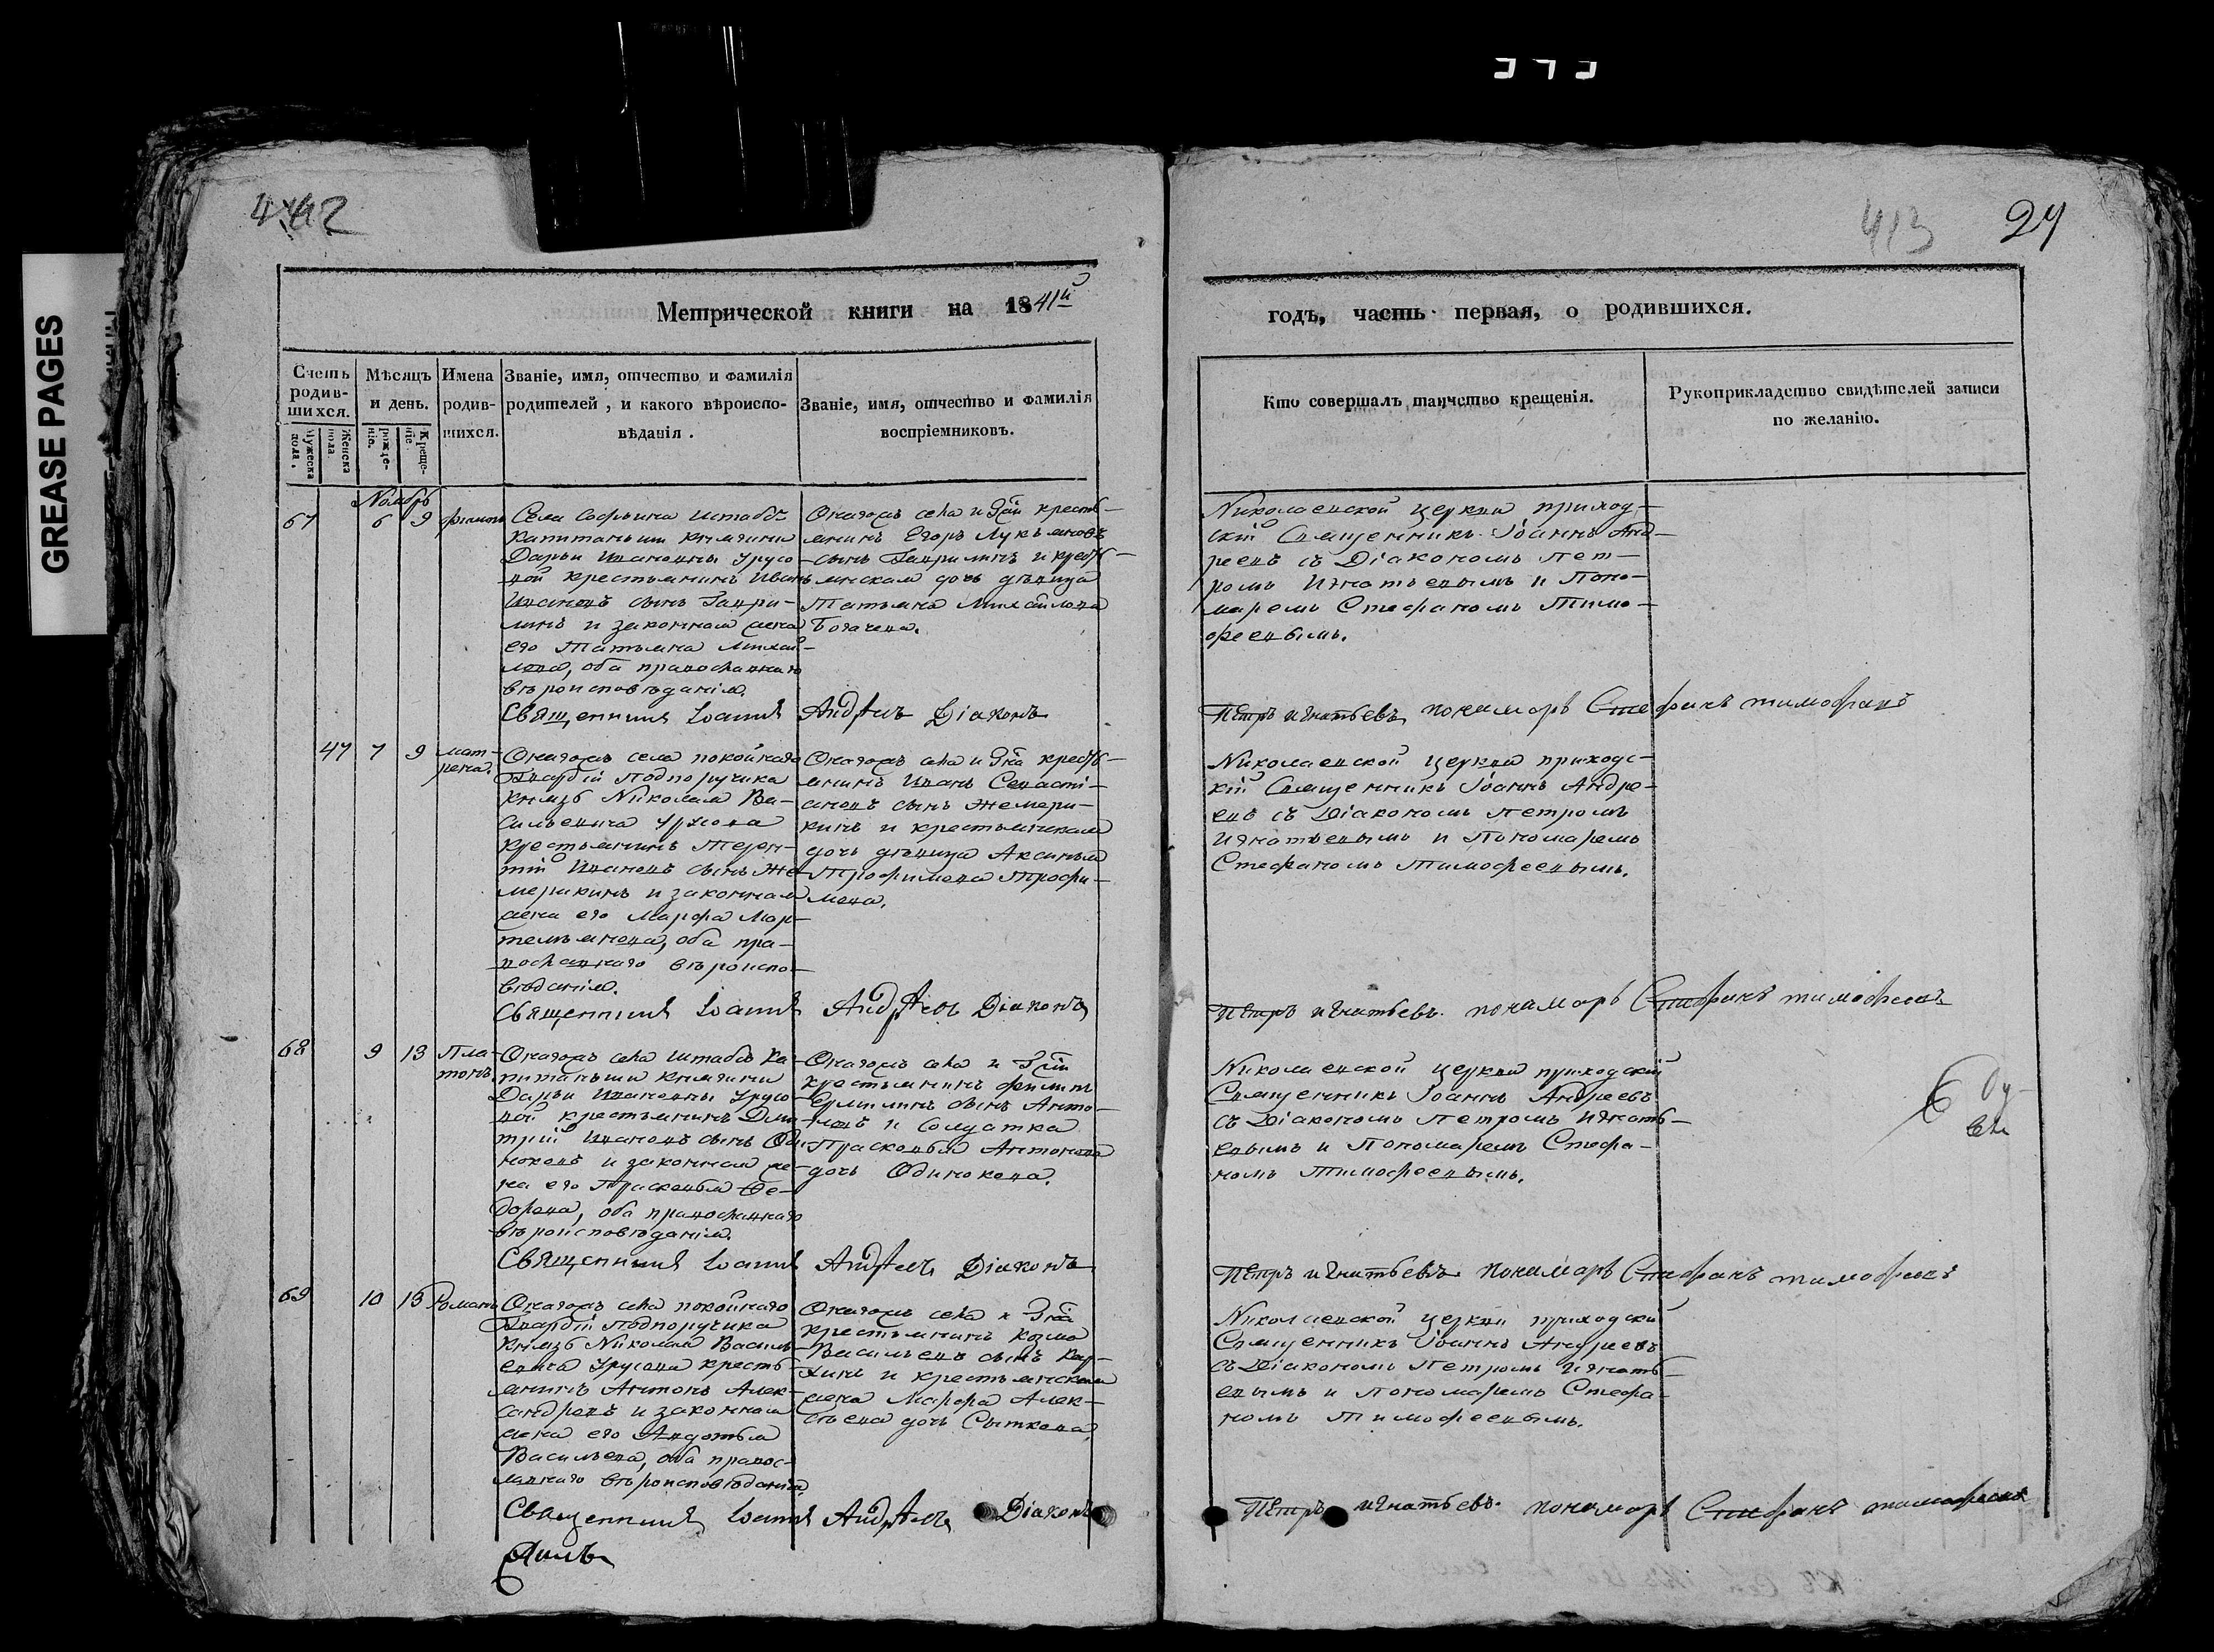 GREASE PAGES
442
413
24
Метрической книги на 1841й
годъ, часть первая, о родившихся.
Счетъ родив-шихся.
Мужеска пола.
Женска пола.
Мѣсяцъ и день.
рожде-ніе.
Креще-ніе.
Имена родив-шихся.
Званіе, имя, отчество и фамилія
родителей, и какого вѣроиспо-
вѣданія.
Званіе, имя, отчество и фамилія
воспріемниковъ.
Кто совершалъ таинство крещенія.
Рукоприкладство свидѣтелей записи
по желанію.
Ноябрь
67 6 9 филипъ
Села Софьина штабсъ
капитанши княгини
Дарьи Ивановны Урусо-
вой крестьянинъ Иванъ
Ивановъ сынъ Гаври-
линъ и законная жена
его Татьяна Михай-
лова, оба православнаго
вѣроисповѣданія.
Онагожъ села и Гжи кресть-
янинъ Егоръ Лукьяновъ
сынъ Гаврилинъ и кресть-
янская дочь дѣвица
Татьяна Михайлова
Богачева.
Николаевской церкви приход-
скій Священникъ Іоаннъ Анд-
реевъ съ Діакономъ Пет-
ромъ Игнатьевымъ и Поно-
маремъ Стефаномъ Тимо-
феевымъ.
Священникъ Іоаннъ Андреевъ Діаконъ
Петръ Игнатьевъ понамарь Стефанъ тимофеевъ
47 7 9 мат-
рена.
Онагожъ села покойнаго
Гвардіи Подпоручика
Князь Николая Ва-
сильевича Урусова
крестьянинъ Терен-
тій Ивановъ сынъ Же-
мерикинъ и законная
жена его Марфа Мар-
темьянова, оба пра-
вославнаго вѣроиспо-
вѣданія.
Онагожъ села и Гна кресть-
янинъ Иванъ Севасті-
ановъ сынъ Жемери-
кинъ и крестьянская
дочь дѣвица Аксинья
Трофимова Трофи-
мова.
Николаевской церкви приходс-
кій Священникъ Іоаннъ Андре-
евъ съ Діакономъ Петромъ
Игнатьевымъ и Пономаремъ
Стефаномъ Тимофеевымъ.
Священникъ Іоаннъ Андреевъ Діаконъ
Петръ Игнатьевъ понамарь Стефанъ тимофеевъ
68 9 13 Пла-
тонъ.
Онагожъ села штабсъ ка-
питанши княгини
Дарьи Ивановны Урусо-
вой крестьянинъ Дми-
трій Ивановъ сынъ Оди-
ноковъ и законная же-
на его Прасковья Фе-
дорова, оба православнаго
вѣроисповѣданія.
Онагожъ села и Гжи
крестьянинъ филипъ
сынъ Анто-
новъ и солдатка
Прасковья Антонова
дочь Одинокова.
Николаевской церкви приходскій
Священникъ Іоаннъ Андреевъ
съ Діакономъ Петромъ Игнать-
евымъ и Пономаремъ Стефа-
номъ Тимофеевымъ.
Священникъ Іоаннъ Андреевъ Діаконъ
Петръ Игнатьевъ понамарь Стефанъ тимофеевъ
69 10 15 Романъ
Онагожъ села покойнаго
Гвардіи Подпоручика
Князь Николая Василь-
евича Урусова кресть-
янинъ Антонъ Алек-
сандровъ и законная
жена его Авдотья
Васильева, оба правос-
лавнаго вѣроисповѣданія.
Онагожъ села и Гна
крестьянинъ Козма
Васильевъ сынъ
и крестьянская
жена Марфа Алек-
сѣева дочь Сыткова.
Николаевской церкви приходскій
Священникъ Іоаннъ Андреевъ
съ Діакономъ Петромъ Игнать-
евымъ и Пономаремъ Стефа-
номъ Тимофеевымъ.
Священникъ Іоаннъ Андреевъ Діаконъ
Петръ Игнатьевъ понамарь Стефанъ тимофеевъ